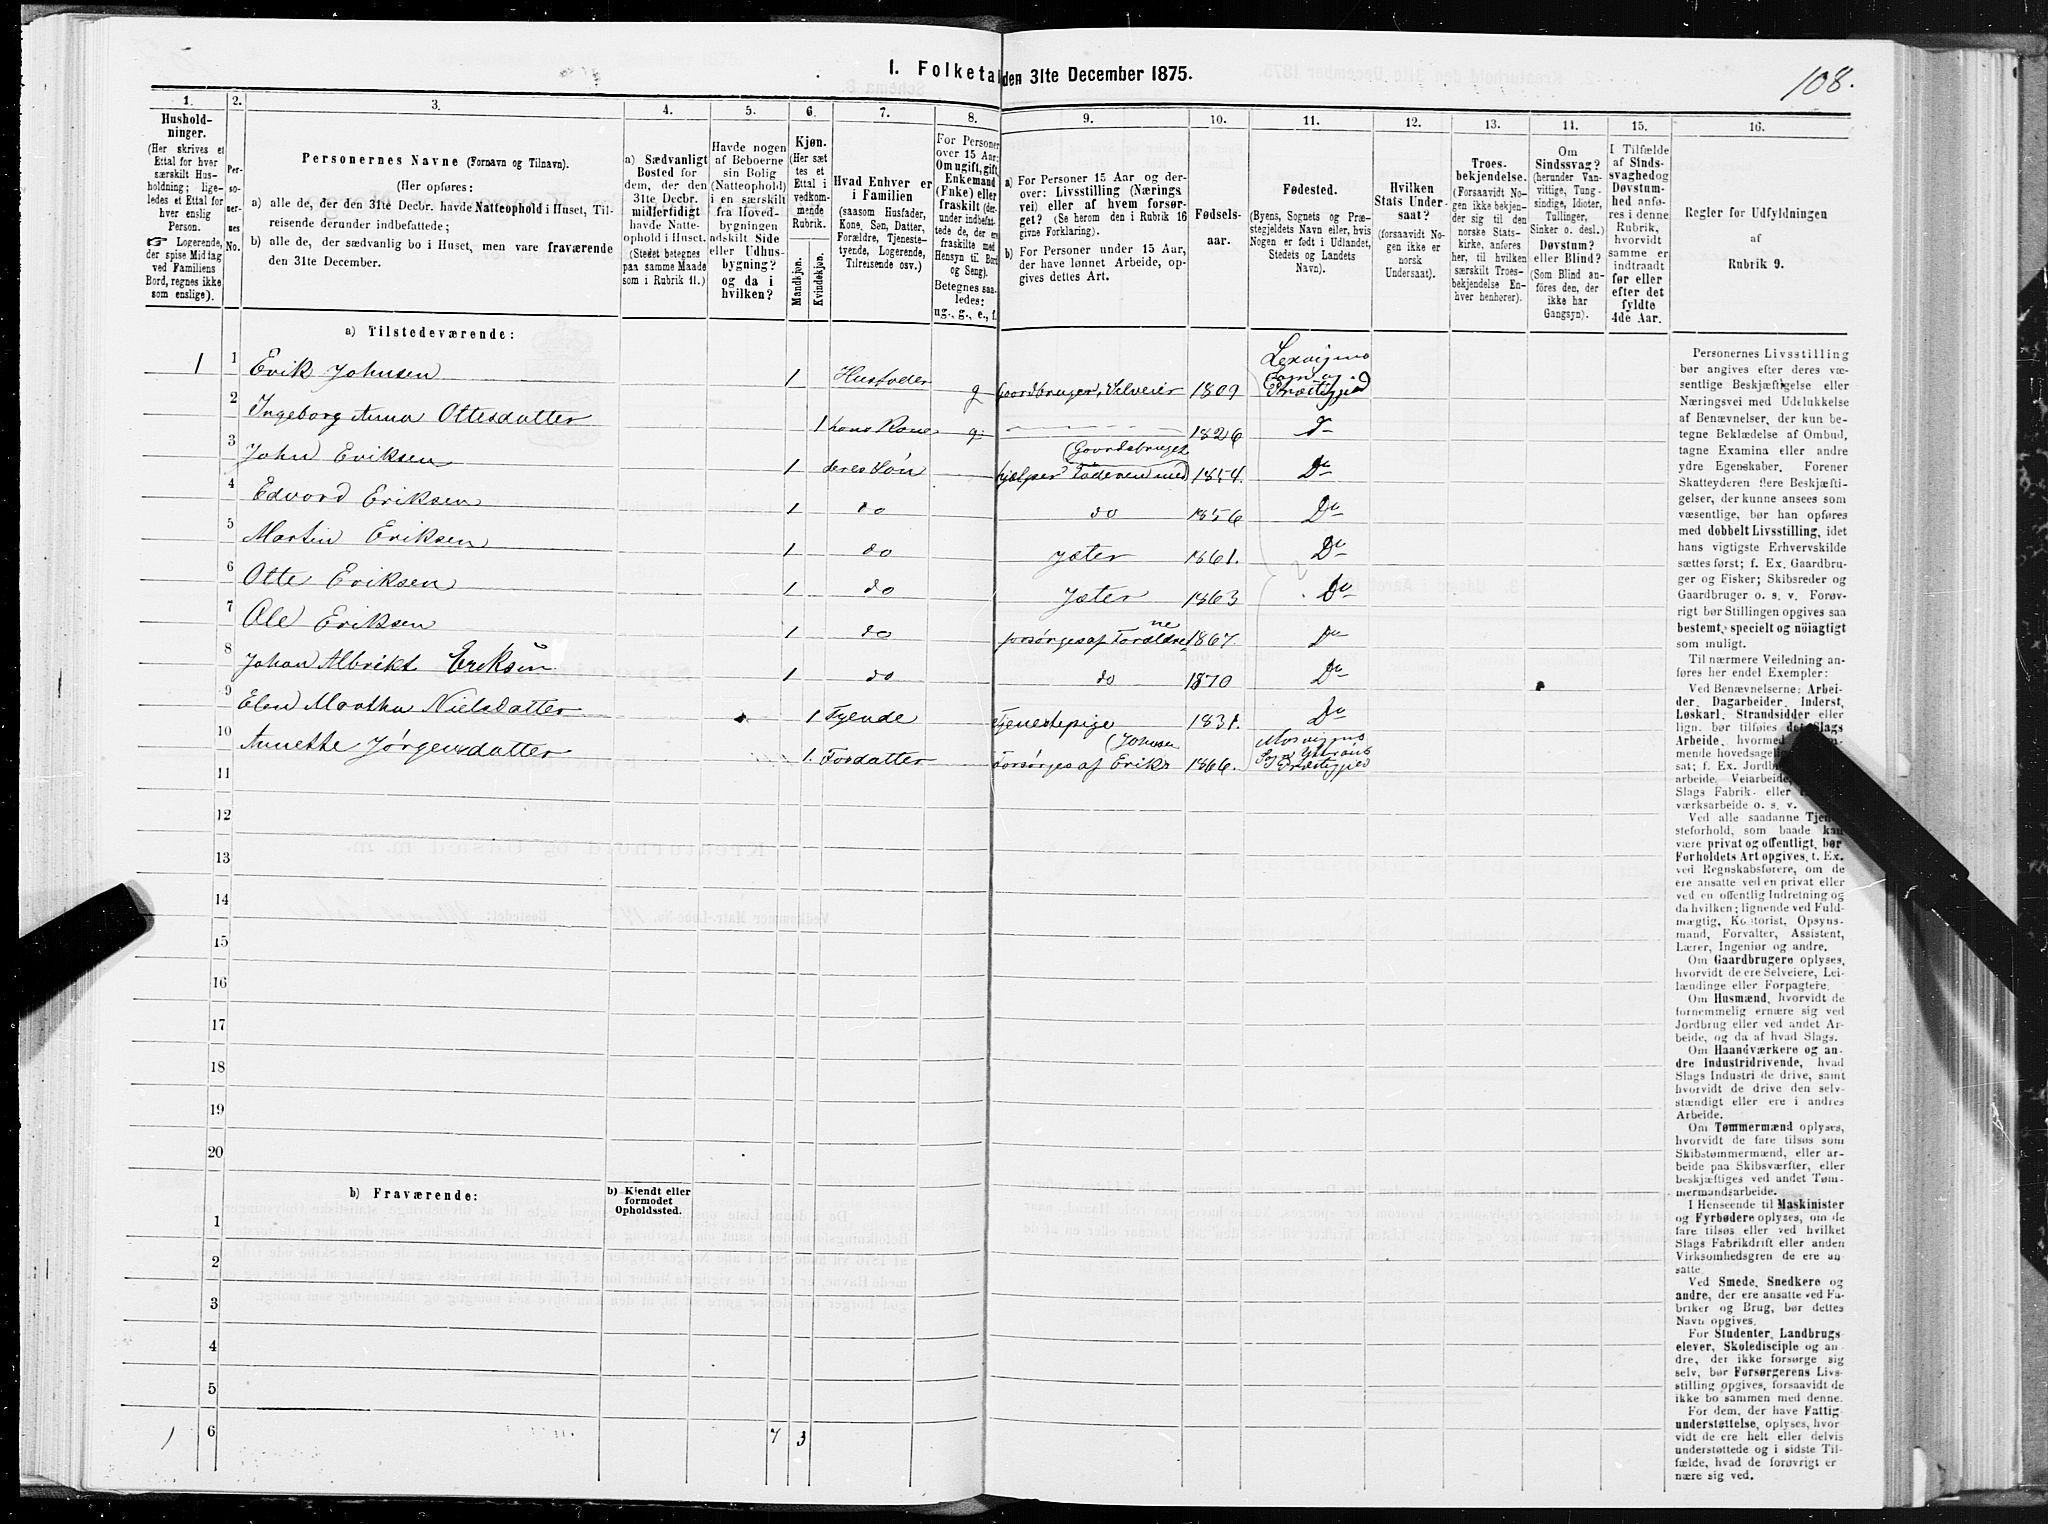 1. Folketal den 31te December 1875.
108.
1. 2. 3. 4. 5. 6. 7. 8. 9. 10. 11. 12. 13. 14. 15. 16.
Hushold-
ninger.
(Her skrives et
Ettal for hver
særskilt Hus-
holdning; lige-
ledes et Ettal for
hver enslig
Person.
☞ Logerende,
der spise Middag
ved Familiens
Bord, regnes ikke
som enslige).
Per-
so-
ner-
nes
No.
Personernes Navne (Fornavn og Tilnavn).
(Her opføres:
a) alle de, der den 31te Decbr. havde Natteophold i Huset, Til-
reisende derunder indbefattede;
b) alle de, der sædvanlig bo i Huset, men vare fraværende
den 31te December.
a) Sædvanligt
Bosted for
dem, der den
31te Decbr.
midlertidigt
havde Natte-
ophold i Huset.
(Stedet betegnes
paa samme Maade
som i Rubrik 11.)
Havde nogen
af Beboerne
sin Bolig
(Natteophold)
i en særskilt
fra Hoved-
bygningen
adskilt Side
eller Udhus-
bygning?
og da i
hvilken?
Kjøn.
(Her sæt-
tes et
Ettal i
vedkom-
mende
Rubrik.
Mandkjøn.
Kvindekjøn.
Hvad Enhver er
i Familien
(saasom Husfader,
Kone, Søn, Datter,
Forældre, Tjeneste-
tyende, Logerende,
Tilreisende osv.)
For Personer
over 15 Aar:
Om ugift, gift,
Enkemand
(Enke) eller
fraskilt (der-
under indbefat-
tede de, der ere
fraskilte med
Hensyn til Bord
og Seng).
Betegnes saa-
ledes:
ug., g., e., f.
a) For Personer 15 Aar og der-
over: Livsstilling (Nærings
vei) eller af hvem forsør-
get? (Se herom den i Rubrik 16
givne Forklaring).
b) For Personer under 15 Aar,
der have lønnet Arbeide, op-
gives dettes Art.
Fødsels-
aar.
Fødested.
(Byens, Sognets og Præ-
stegjeldets Navn eller, hvis
Nogen er født i Udlandet,
Stedets og Landets
Navn).
Hvilken
Stats Under-
saat?
(forsaavidt No-
gen ikke er
norsk
Undersaat).
Troes-
bekjendelse.
(Forsaavidt No-
gen ikke bekjen-
der sig til den
norske Stats-
kirke, anføres
her, til hvilken
særskilt Troes-
bekjendelse En-
hver henhører).
Om
Sindssvag?
(herunder Van-
vittige, Tung-
sindige, Idioter,
Tullinger,
Sinker o. desl.)
Døvstum?
eller Blind?
(Som Blind an-
føres den, der
ikke har
Gangsyn).
I Tilfælde
af Sinds-
svaghed og
Døvstum-
hed anfø-
res i denne
Rubrik,
hvorvidt
samme er
indtraadt
før eller
efter det
fyldte
4de Aar.
Regler for Udfyldningen
af
Rubrik 9.
a) Tilstedeværende:
1 1 Erik Johnsen 1 Husfader g Gaardbruger, Selveier 1809 Lexvigmo Sogn og Præstegjed
2 Ingeborg Anna Ottesdatter 1 hans Kone g. 1826 D
3 John Eriksen 1 deres Søn hjelper Faderen med (Gaardsbruget 1854. Do
4 Edvard Eriksen 1 do do 1856 Do
5 Martin Eriksen 1 do Jæter 1861. Do
6 Otte Eriksen 1 do Jæter 1863 Do
7 Ole Eriksen 1 do forsørges af Forældrene 1867. Do
8 Johan Albrikt Eriksen 1 do do 1870 Do
9 Elen Martha Nielsdatter 1 Tyende Tjenestepige 1831. Do
10 Annette Jørgensdatter 1. Fosdatter forsørges af Erik (Johnsen 1866. Præstegjed
11
12
13
14
15
16
17
18
19
20
b) Fraværende:
b) Kjendt eller
formodet
Opholdssted.
1
2
3
4
5
1 6 7 3
Personernes Livsstilling
bør angives efter deres væ-
sentlige Beskjæftigelse eller
Næringsvei med Udelukkelse
af Benævnelser, der kun be-
tegne Beklædelse af Ombud,
tagne Examina eller andre
ydre Egenskaber. Forener
Skatteyderen flere Beskjæfti-
gelser, der kunne ansees som
væsentlige, bør han opføres
med dobbelt Livsstilling, idet
hans vigtigste Erhvervskilde
sættes først; f. Ex. Gaardbru-
ger og Fisker; Skibsreder og
Gaardbruger o. s. v. Forøv-
rigt bør Stillingen opgives saa
bestemt, specielt og nöiagtigt
som muligt.
Til nærmere Veiledning an-
føres her endel Exempler:
Ved Benævnelserne: Arbei-
der, Dagarbeider, Inderst,
Løskarl, Strandsidder eller
lign. bør tilføies det Slags
Arbeide, hvormed
mende hovedsagelig
sat; f. Ex. Jordbr
arbeide, Veiarbeide,
Slags Fabrik- eller
værksarbeide o. s. v.
Ved alle saadanne Tjen-
steforhold, som baade kan
være privat og offentligt, bør
Forholdets Art opgives, f. Ex.
ved Regnskabsførere, om de
ere ansatte ved en privat eller
ved en offentlig Indretning og
da hvilken; lignende ved Fuld-
mægtig, Kontorist, Opsyns-
mand, Forvalter, Assistent,
Lærer, Ingeniør og andre.
Om Gaardbrugere oplyses,
hvorvidt de ere Selveiere, Lei-
lændinge eller Forpagtere.
Om Husmænd, hvorvidt de
fornemmelig ernære sig ved
Jordbrug eller ved andet Ar-
beide, og da af hvad Slags.
Om Haandværkere og an-
dre Industridrivende, hvad
Slags Industri de drive, samt
hvorvidt de drive den selv-
stændigt eller ere i andres
Arbeide.
Om Tømmermænd oplyses,
hvorvidt de fare tilsøs som
Skibstømmermænd, eller ar-
beide paa Skibsværfter, eller
beskjæftiges ved andet Tøm-
mermandsarbeide.
I Henseende til Maskinister
og Fyrbødere oplyses, om de
fare tilsøs eller ved hvilket
Slags Fabrikdrift eller anden
Virksomhedsgren de ere an-
satte.
Ved Smede, Snedkere og
andre, der ere ansatte ved Fa-
briker og Brug, bør dettes
Navn opgives.
For Studenter, Landbrugs-
elever, Skoledisciple og an-
dre, der ikke forsørge sig
selv, bør Forsørgerens Livs-
stilling opgives, forsaavidt de
ikke bo sammen med denne.
For dem, der have Fattig-
understøttelse, oplyses, hvor-
vidt de ere helt eller delvis
understøttede og i sidste Til-
fælde, hvad de forøvrigt er
nære sig ved.